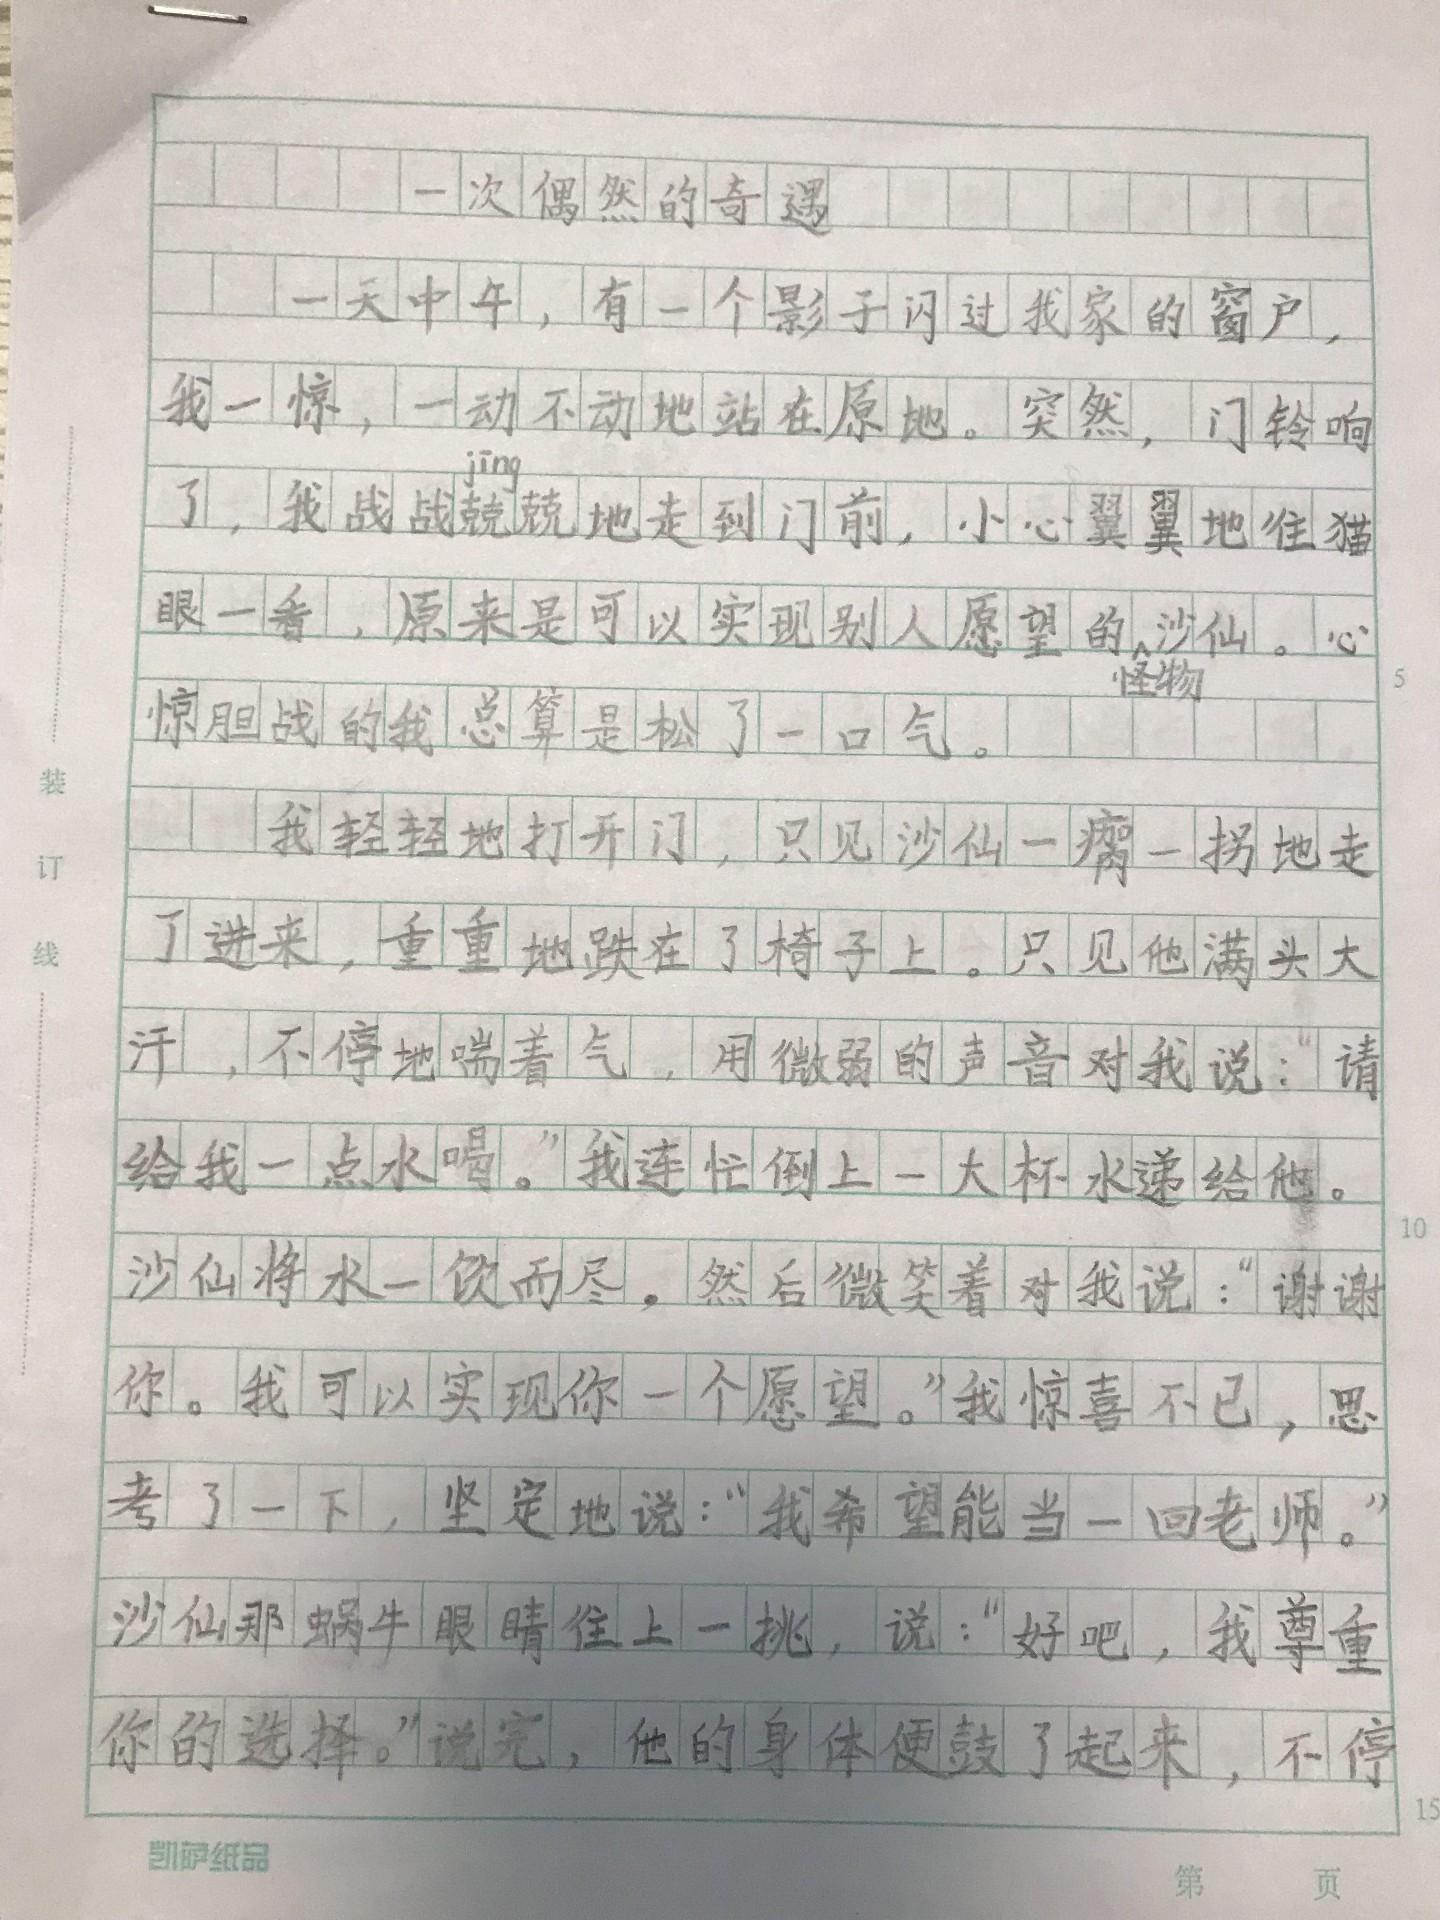 一次偶然的奇遇
一天中午，有一个影子闪过我家的窗户，
我一惊，一动不动地站在原地。突然，门铃响
jīng
了，我战战兢兢地走到门前，小心翼翼地往猫
眼一看，原来是可以实现别人愿望的沙仙。心
怪物
惊胆战的我总算是松了一口气。
我轻轻地打开门，只见沙仙一瘸一拐地走
了进来，重重地跌在了椅子上。只见他满头大
汗，不停地喘着气，用微弱的声音对我说：“请
给我一点水喝。”我连忙倒上一大杯水递给他。
沙仙将水一饮而尽。然后微笑着对我说：“谢谢
你。我可以实现你一个愿望。”我惊喜不已，思
考了一下，坚定地说：“我希望能当一回老师。”
沙仙那蜗牛眼睛往上一挑，说：“好吧，我尊重
你的选择。”说完，他的身体便鼓了起来，不停
装订线
5
10
15
凯萨纸品
第 页